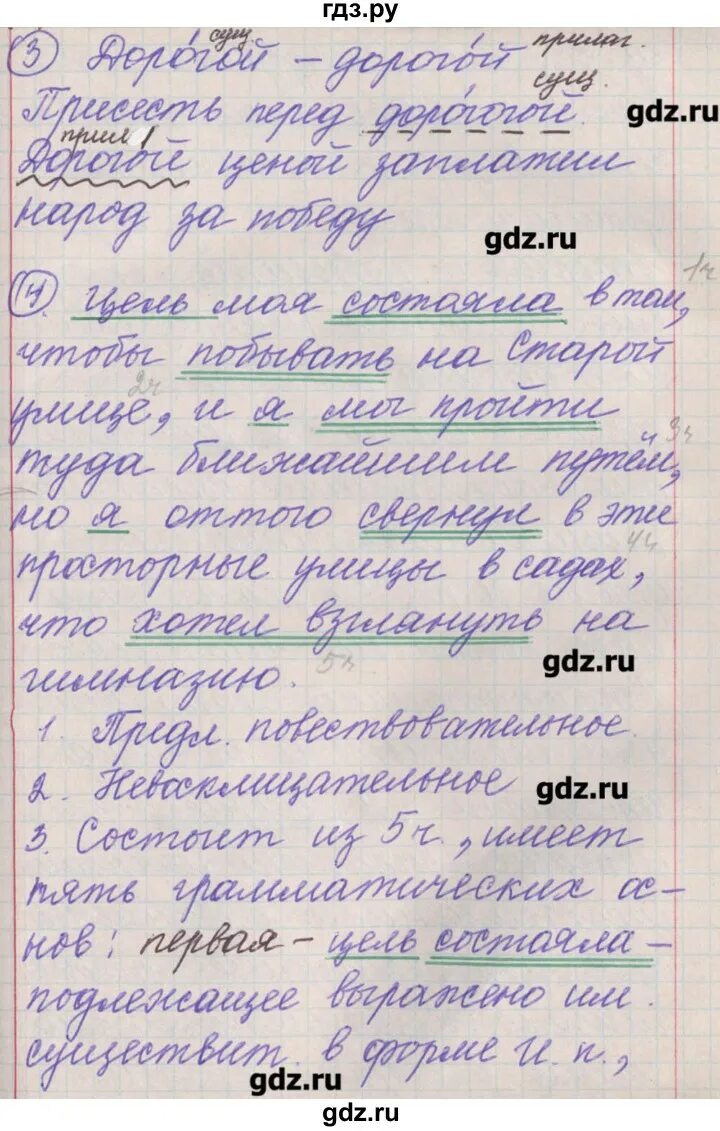 гдз.ру
сущ. прилаг.
3 Доро́гой – дорого́й
сущ.
Присесть перед доро́гогой. gdz.ru
прил
Дорогой ценой заплатил
народ за победу
gdz.ru
1ч
4. Цель моя состояла в том,
чтобы побывать на Старой
2ч
улице, и я мог пройти
3ч
туда ближайшим путём,
но я оттого свернул в эти
4ч
просторные улицы в садах,
что хотел взглянуть на
гимназию. 5ч gdz.ru
1. Предл. повествовательное.
2. Невосклицательное gdz.ru
3. Состоит из 5ч., имеет
пять грамматических ос-
нов: первая – цель состояла –
подлежащее выражено им.
существит. в форме И.п.,
gdz.ru
gdz.ru